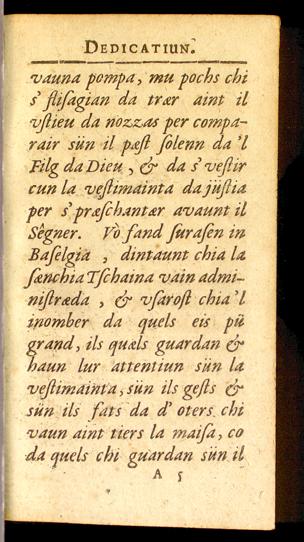 DEDICATIUN.
vauna pompa, mu pochs chi
s' ſtiſagian da træer aint il
vſtieu da nozzas per compa-
rair sün il pæſt ſolenn da 'l
Filg da Dieu, & da s' veſtir
cun la veſtimainta da jüſtia
per s' præſchantær avaunt il
Sègner. Vò fand ſuraſen in
Baſelgia, dintaunt chia la
ſænchia Tſchaina vain admi-
niſtræda, & vſaroſt chia 'l
inomber da quels eis pü
grand, ils quæls guardan &
haun lur attentiun sün la
veſtimainta, sün ils geſts &
sün ils fats da d' oters chi
vaun aint tiers la maiſa, co
da quels chi guardan sün il
A 5